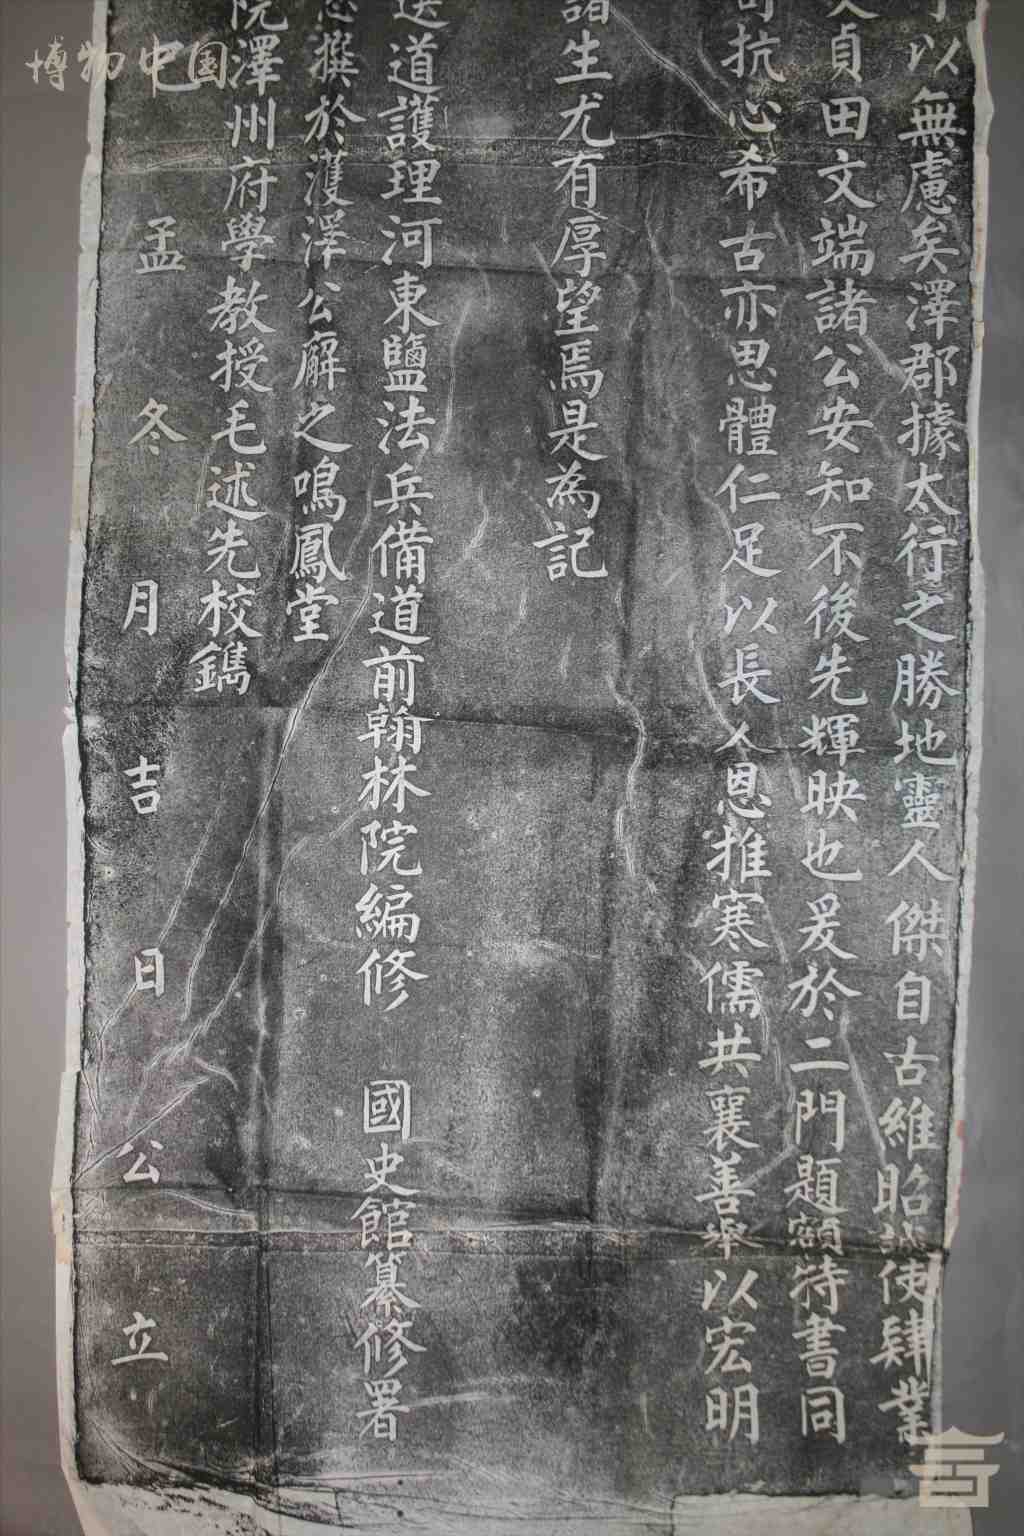 以無慮矣澤郡據太行之勝地靈人傑自古維昭誠使肄業
貞田文端諸公安知不後先輝映也爰於二門題額特書同
抗心希古亦思體仁足以長人恩推寒儒共襄善舉以宏明
諸生尤有厚望焉是為記
送道護理河東鹽法兵備道前翰林院編修 國史館纂修署
撰於濩澤公廨之鳴鳳堂
院澤州府學教授毛述先校鐫
孟冬月吉日公立
博物中国